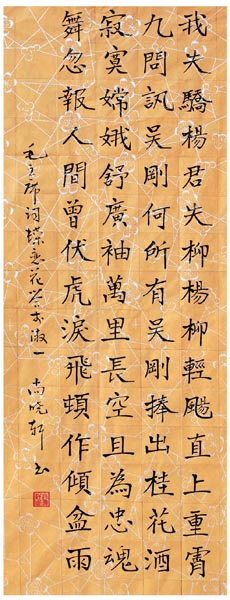 我失驕楊君失柳楊柳輕颺直上重霄
九問訊吳剛何所有吳剛捧出桂花酒
寂寞嫦娥舒廣袖萬里長空且為忠魂
舞忽報人間曾伏虎淚飛頓作傾盆雨
毛主席词蝶恋花答李淑一 尚晓轩书